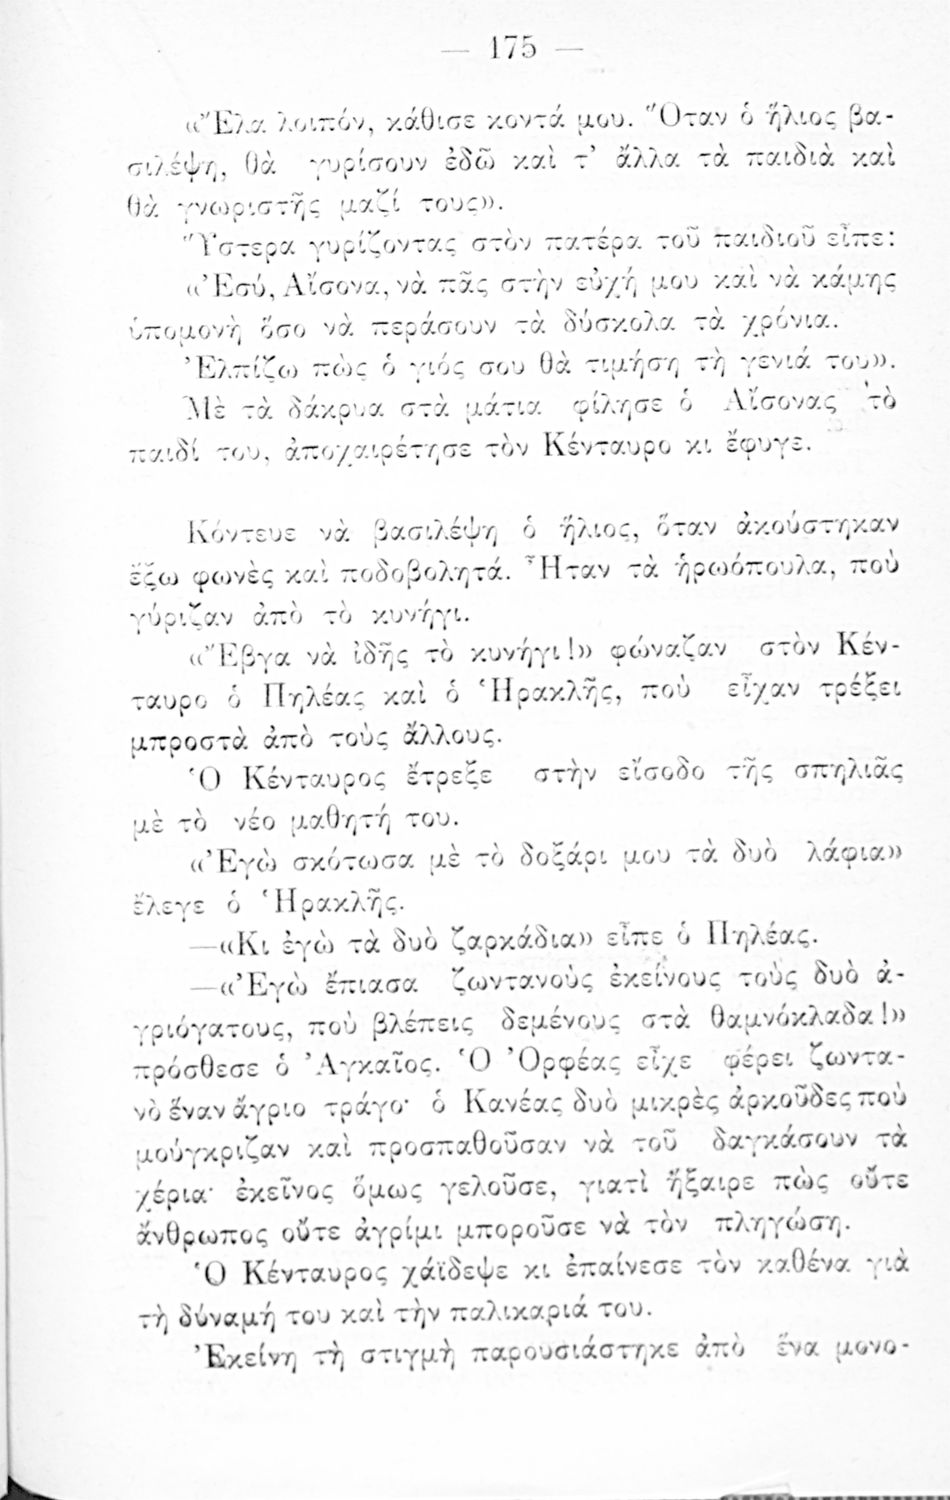 — 175 —
«Ἔλα λοιπόν, κάθισε κοντά μου. Ὅταν ὁ ἥλιος βα-
σιλέψη, θὰ γυρίσουν ἐδῶ καὶ τ’ ἄλλα τὰ παιδιὰ καὶ
θὰ γνωριστῆς μαζί τους».
Ὕστερα γυρίζοντας στὸν πατέρα τοῦ παιδιοῦ εἶπε:
«Ἐσύ, Αἴσονα, νὰ πᾶς στὴν εὐχή μου καὶ νὰ κάμης
ὑπομονὴ ὅσο νὰ περάσουν τὰ δύσκολα τὰ χρόνια.
Ἐλπίζω πὼς ὁ γιός σου θὰ τιμήση τὴ γενιά του».
Μὲ τὰ δάκρυα στὰ μάτια φίλησε ὁ Αἴσονας τὸ
παιδί του, ἀποχαιρέτησε τὸν Κένταυρο κι ἔφυγε.
Κόντευε νὰ βασιλέψη ὁ ἥλιος, ὅταν ἀκούστηκαν
ἔξω φωνὲς καὶ ποδοβολητά. Ἦταν τὰ ἡρωόπουλα, ποὺ
γύριζαν ἀπὸ τὸ κυνήγι.
«Ἔβγα νὰ ἰδῆς τὸ κυνήγι!» φώναζαν στὸν Κέν-
ταυρο ὁ Πηλέας καὶ ὁ Ἡρακλῆς, ποὺ εἶχαν τρέξει
μπροστὰ ἀπὸ τοὺς ἄλλους.
Ὁ Κένταυρος ἔτρεξε στὴν εἴσοδο τῆς σπηλιᾶς
μὲ τὸ νέο μαθητή του.
«Ἐγὼ σκότωσα μὲ τὸ δοξάρι μου τὰ δυὸ λάφια»
ἔλεγε ὁ Ἡρακλῆς.
—«Κι ἐγὼ τὰ δυὸ ζαρκάδια» εἶπε ὁ Πηλέας.
—«Ἐγὼ ἔπιασα ζωντανοὺς ἐκείνους τοὺς δυὸ ἀ-
γριόγατους, ποὺ βλέπεις δεμένους στὰ θαμνόκλαδα!»
πρόσθεσε ὁ Ἀγκαῖος. Ὁ Ὀρφέας εἶχε φέρει ζωντα-
νὸ ἕναν ἄγριο τράγο· ὁ Κανέας δυὸ μικρὲς ἀρκοῦδες ποὺ
μούγκριζαν καὶ προσπαθοῦσαν νὰ τοῦ δαγκάσουν τὰ
χέρια· ἐκεῖνος ὅμως γελοῦσε, γιατὶ ἤξαιρε πὼς οὔτε
ἄνθρωπος οὔτε ἀγρίμι μποροῦσε νὰ τὸν πληγώση.
Ὁ Κένταυρος χάϊδεψε κι ἐπαίνεσε τὸν καθένα γιὰ
τὴ δύναμή του καὶ τὴν παλικαριά του.
Ἐκείνη τὴ στιγμὴ παρουσιάστηκε ἀπὸ ἕνα μονο-